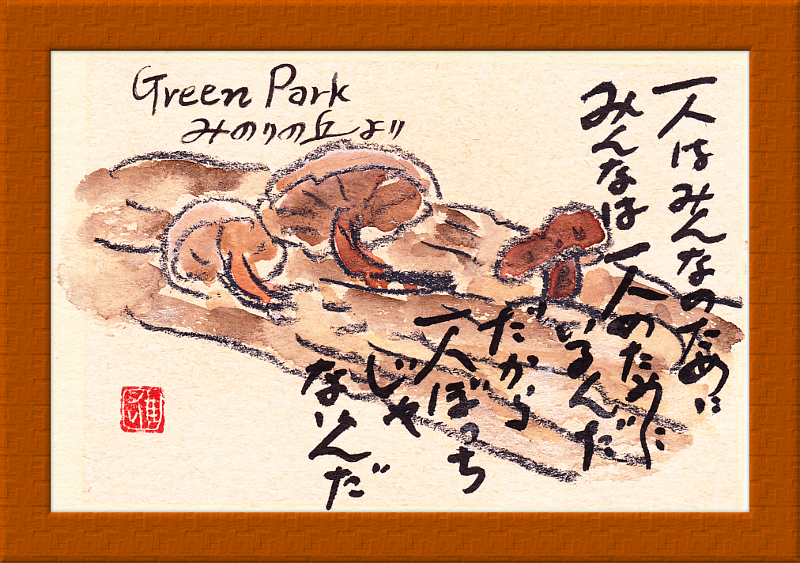 Green Park
みのりの丘より
一人はみんなのために
みんなは一人のために
いるんだ
だから
一人ぼっち
じゃ
ないんだ